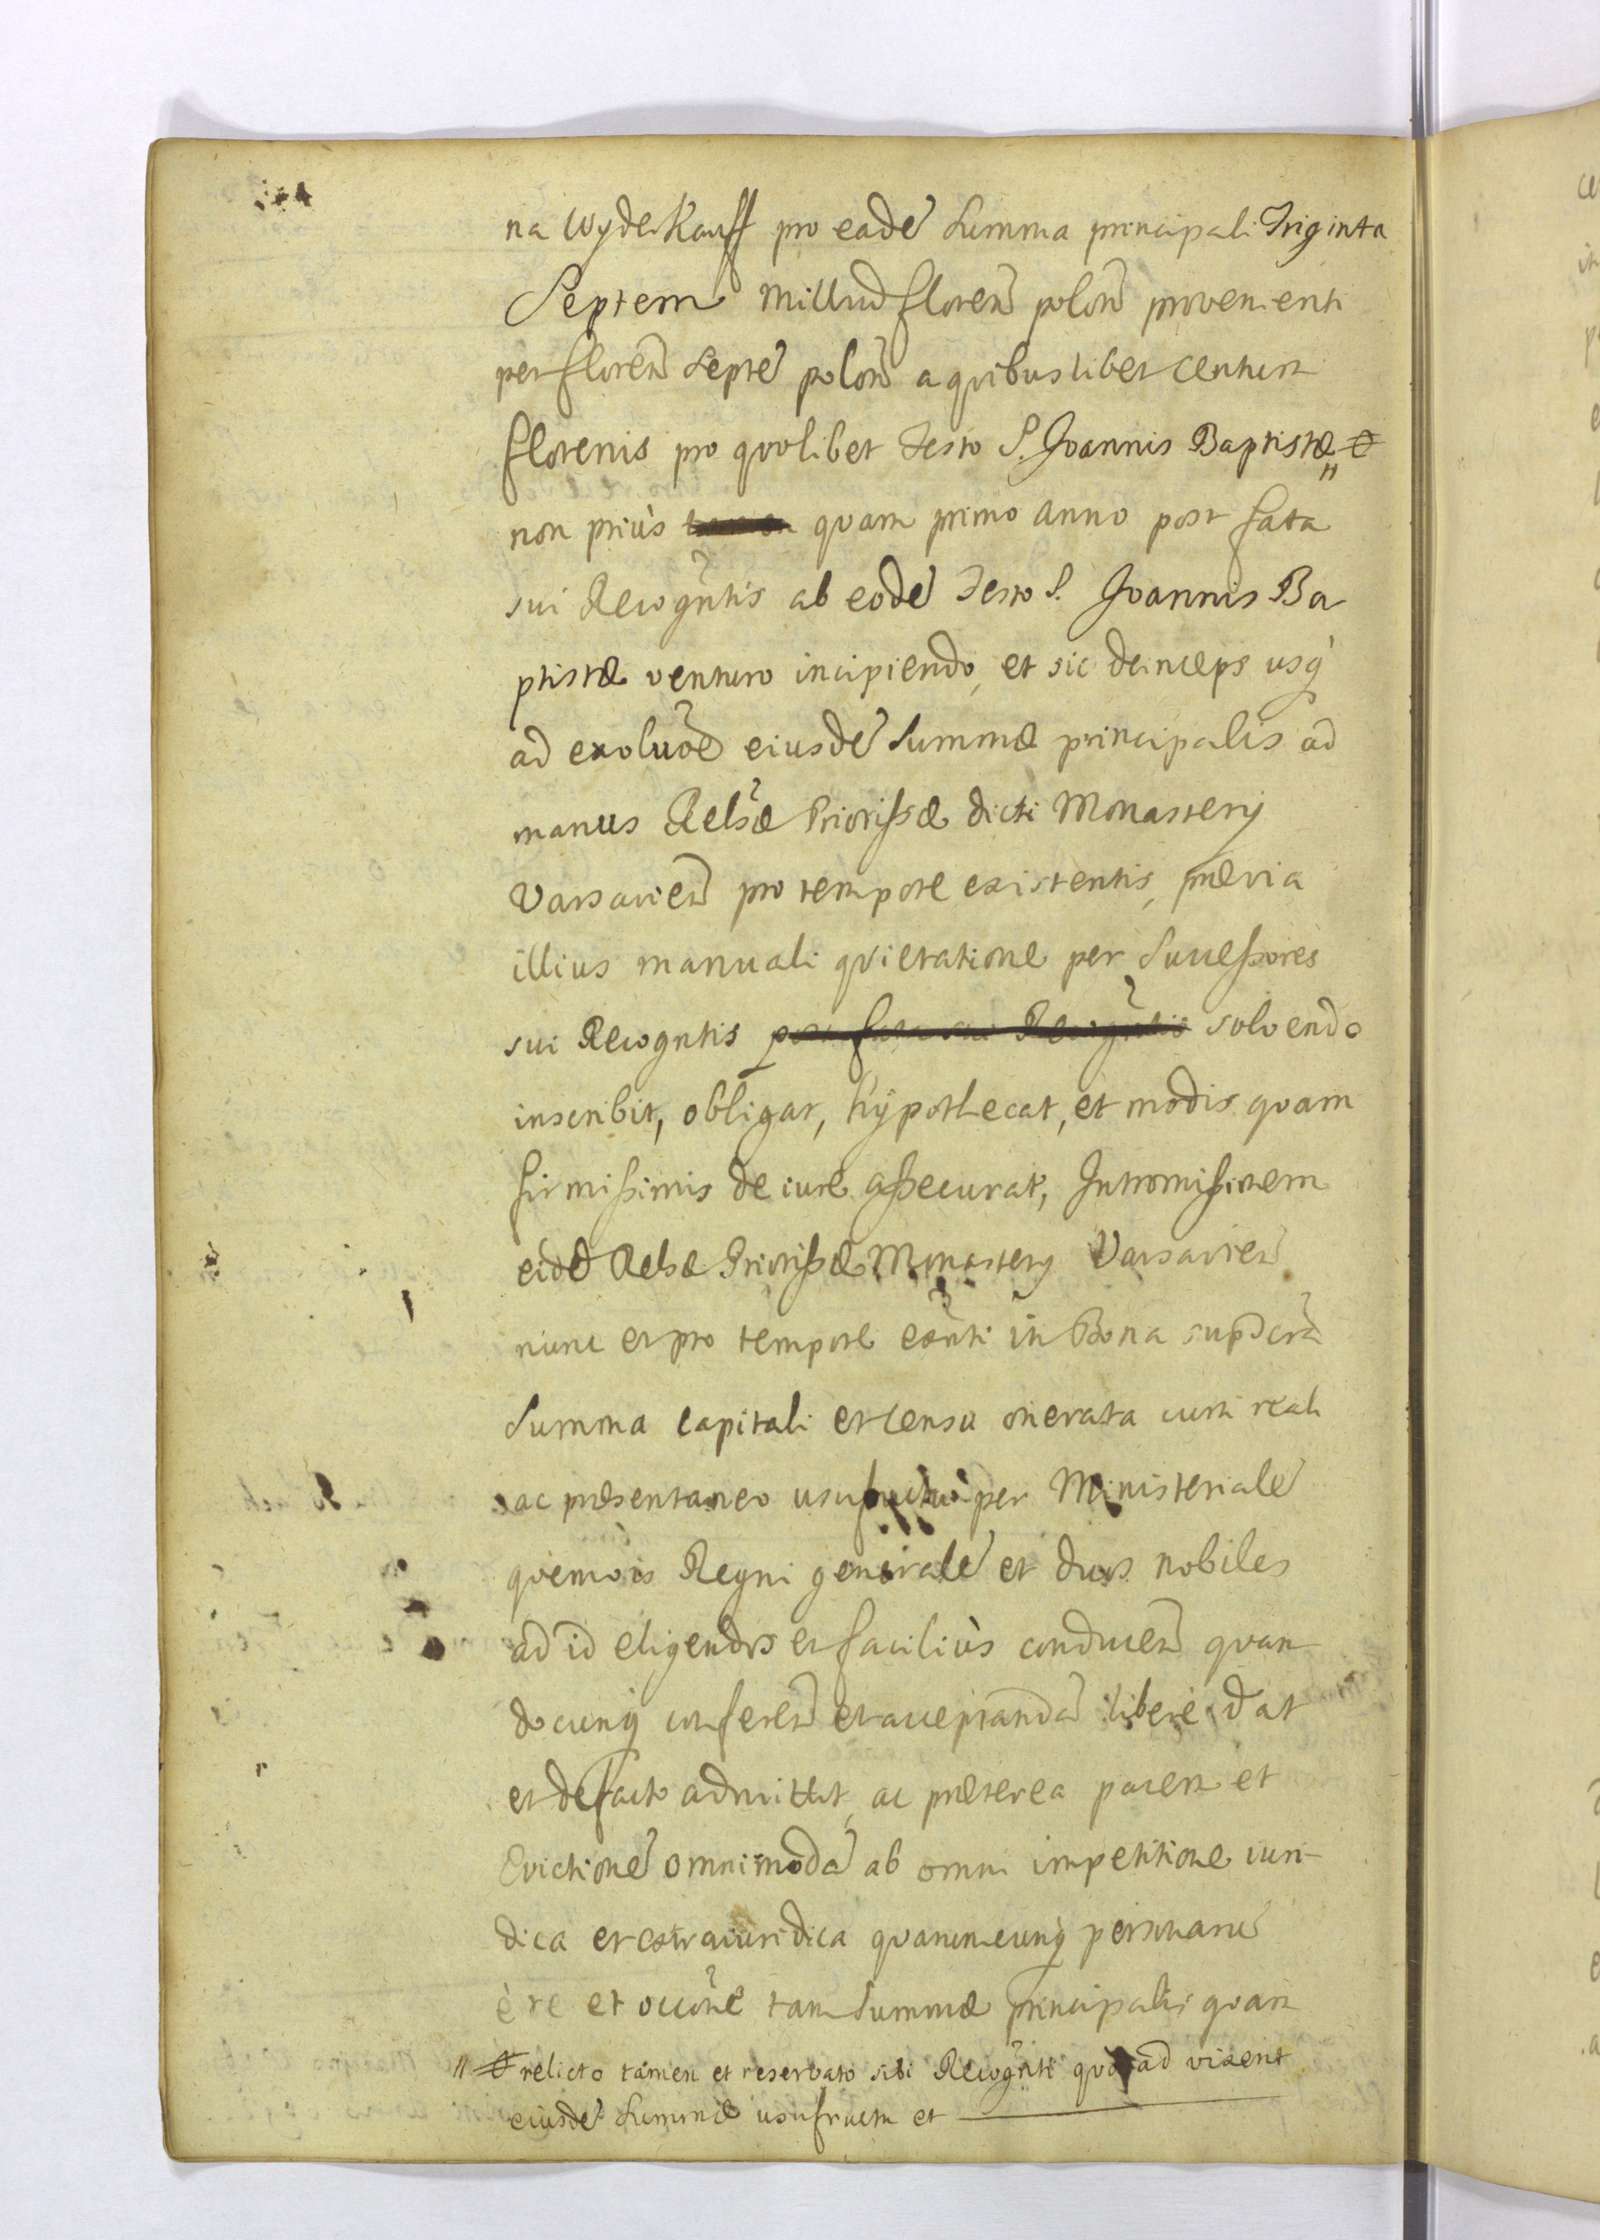 na Wyderkauff pro eadē Summa principali Triginta
Septem Milliū floreñ poloñ provenienti
per floreñ Septē poloñ a quibuslibet centum
florenis pro quolibet Festo S. Joannis Baptistæ #
non priùs quam primo anno post fata
sui Recogñtis ab eodē Festo S. Joannis Ba
ptistæ venturo incipiendo, et sic deinceps usq̃
ad exoluõē eiusdē Summæ principalis ad
manus Relsæ Priorißæ dicti Monastery
Varsavieñ pro tempore existentis, prævia
illius manuali quietatione per Succeßores
sui Recogntis post fata sui Recogñtis solvendo
inscribit, obligat, hÿpothecat, et modis quam
firmißimis de iure aßecurat, Intromißionem
eidē Relsæ Priorißæ Monastery Varsavieñ
nunc et pro tempore exñti in Bona supradictã
Summa capitali et censu onerata cum reali
ac præsentaneo usufructu per Ministerialē
quemvis Regni generalē et duos nobiles
ad id eligendos et faciliùs conduceñ quan
docunq̃ confereñ et acceptandã liberè dat
et defacto admittit, ac præterea pacem et
Evictionē omnimodã ab omni impetitione iuri-
dica et extraiuridica quarumcunq̃ personarũ
è re et occõne tam Summæ principalis quam
" # relicto tamen et reservato sibi Recogñti quo ad vixerit
eiusdē Summæ usufructu et